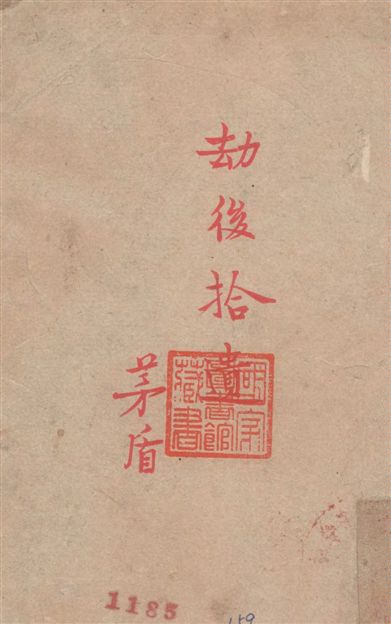 劫後拾遺
茅盾
國家
圖書館
藏書
1185
159